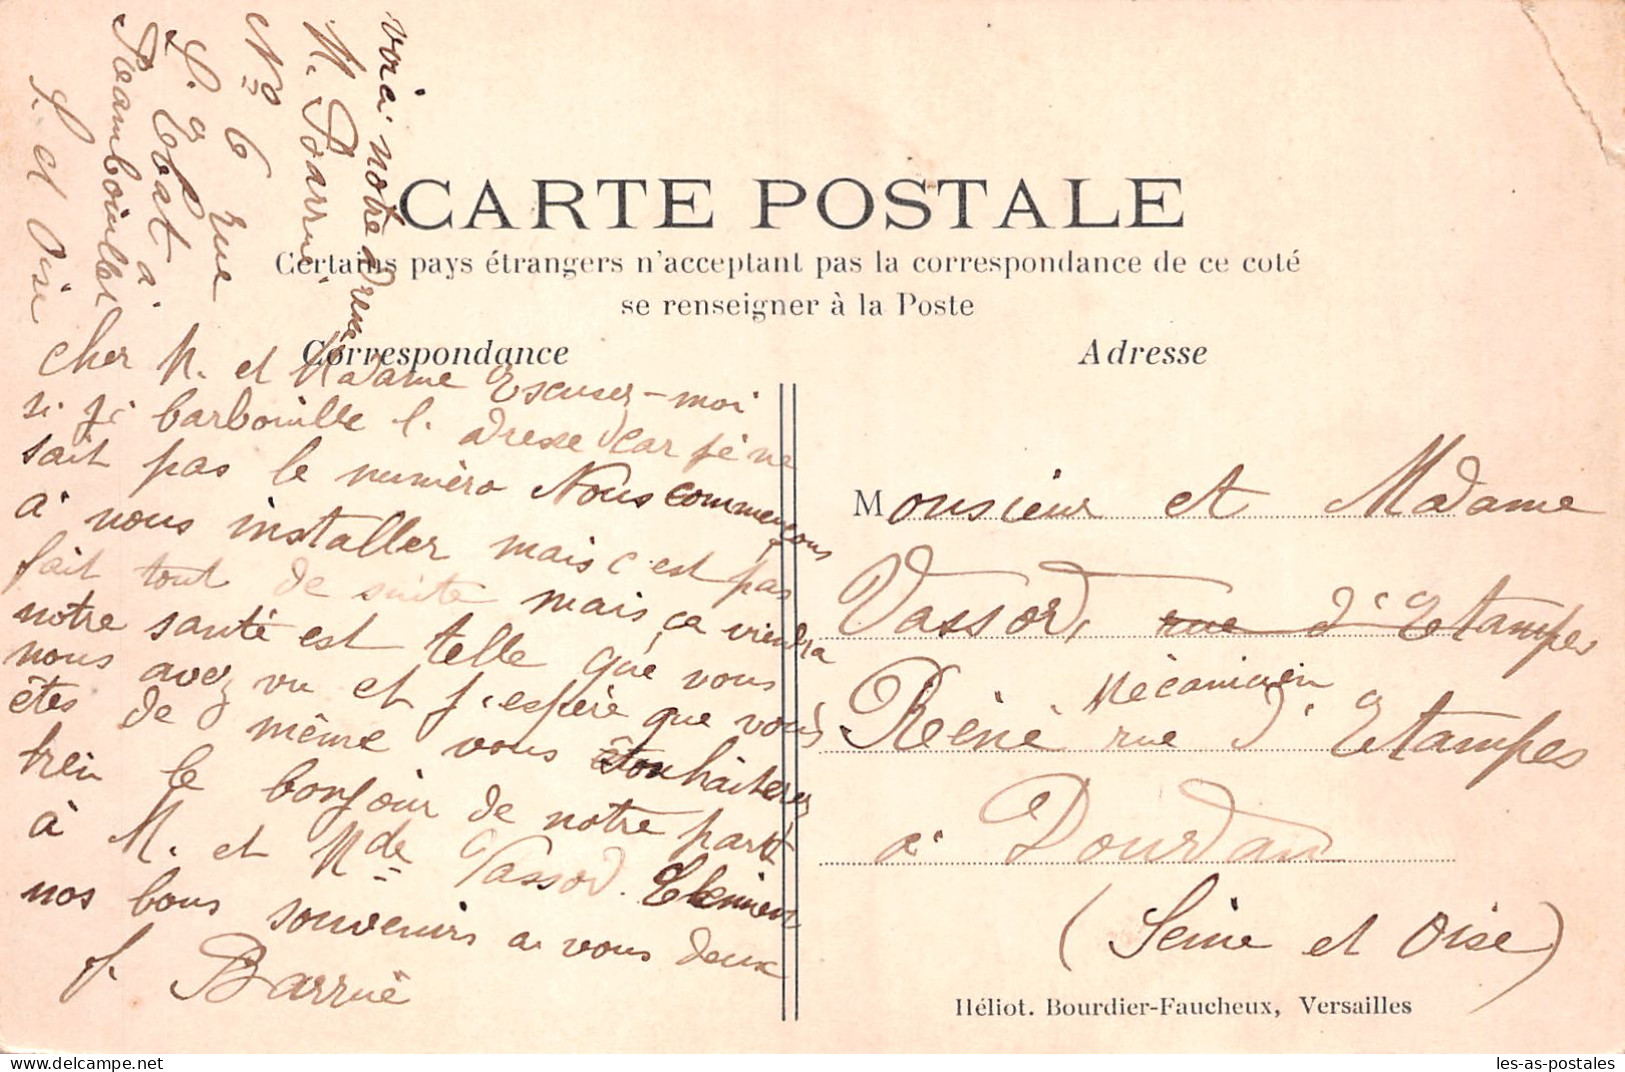 voici notre adresse
M. Barrué
No 6 rue
L. a Ebat à
Reambouillet
S. et Oise
CARTE POSTALE
Certains pays étrangers n'acceptant pas la correspondance de ce coté
se renseigner à la Poste
Correspondance
Adresse
Cher M. et Madame Escuser-moi
si jé barbouille l. adresse car jé ne
sait pas le numéro Nous commençons
à nous installer mais c'est pas
fait tout de suite mais ça viendra
notre santé est telle que vous
nous avez vu et j'espère que vous
êtes de même vous souhaiterez
bien le bonjour de notre part
à M. et Mde Vassord.
nos bons souvenirs a vous deux
f. Barrué
Monsieur et Madame
Vassord, rue d'Etampes
Mécanicien
Réné rue d'Etampes
à Dourdan
(Seine et Oise)
Héliot. Bourdier-Faucheux, Versailles
les-as-postales